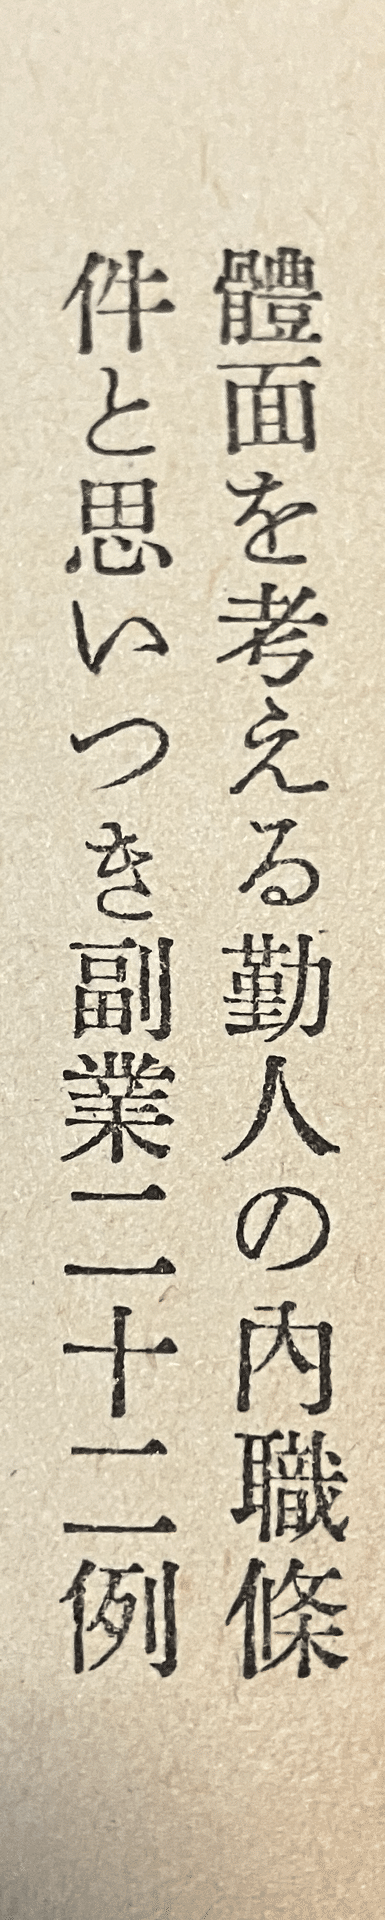 體面を考える勤人の內職條
件と思いつき副業二十二例